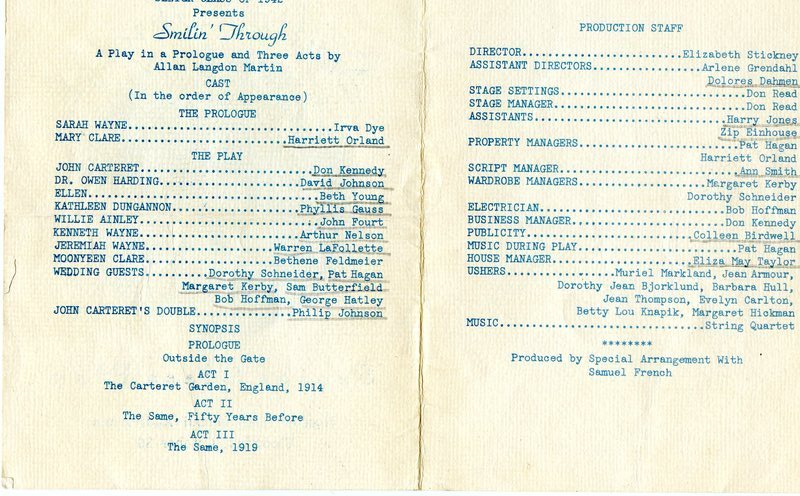 SENIOR CLASS OF 1942
Presents
Smilin' Through
A Play in a Prologue and Three Acts by
Allan Langdon Martin
CAST
(In the order of Appearance)
THE PROLOGUE
SARAH WAYNE..............................Irva Dye
MARY CLARE........................Harriett Orland
THE PLAY
JOHN CARTERET.........................Don Kennedy
DR. OWEN HARDING....................David Johnson
ELLEN..................................Beth Young
KATHLEEN DUNGANNON..................Phyllis Gauss
WILLIE AINLEY..........................John Fourt
KENNETH WAYNE.......................Arthur Nelson
JEREMIAH WAYNE..................Warren LaFollette
MOONYEEN CLARE..................Bethene Feldmeier
WEDDING GUESTS........Dorothy Schneider, Pat Hagan
Margaret Kerby, Sam Butterfield
Bob Hoffman, George Hatley
JOHN CARTERET'S DOUBLE.............Philip Johnson
SYNOPSIS
PROLOGUE
Outside the Gate
ACT I
The Carteret Garden, England, 1914
ACT II
The Same, Fifty Years Before
ACT III
The Same, 1919
PRODUCTION STAFF
DIRECTOR.......................Elizabeth Stickney
ASSISTANT DIRECTORS...............Arlene Grendahl
Dolores Dahmen
STAGE SETTINGS...........................Don Read
STAGE MANAGER............................Don Read
ASSISTANTS............................Harry Jones
Zip Einhouse
PROPERTY MANAGERS.......................Pat Hagan
Harriett Orland
SCRIPT MANAGER..........................Ann Smith
WARDROBE MANAGERS..................Margaret Kerby
Dorothy Schneider
ELECTRICIAN...........................Bob Hoffman
BUSINESS MANAGER......................Don Kennedy
PUBLICITY........................Colleen Birdwell
MUSIC DURING PLAY.......................Pat Hagan
HOUSE MANAGER....................Eliza May Taylor
USHERS................Muriel Markland, Jean Armour,
Dorothy Jean Bjorklund, Barbara Hull,
Jean Thompson, Evelyn Carlton,
Betty Lou Knapik, Margaret Hickman
MUSIC..............................String Quartet
********
Produced by Special Arrangement With
Samuel French